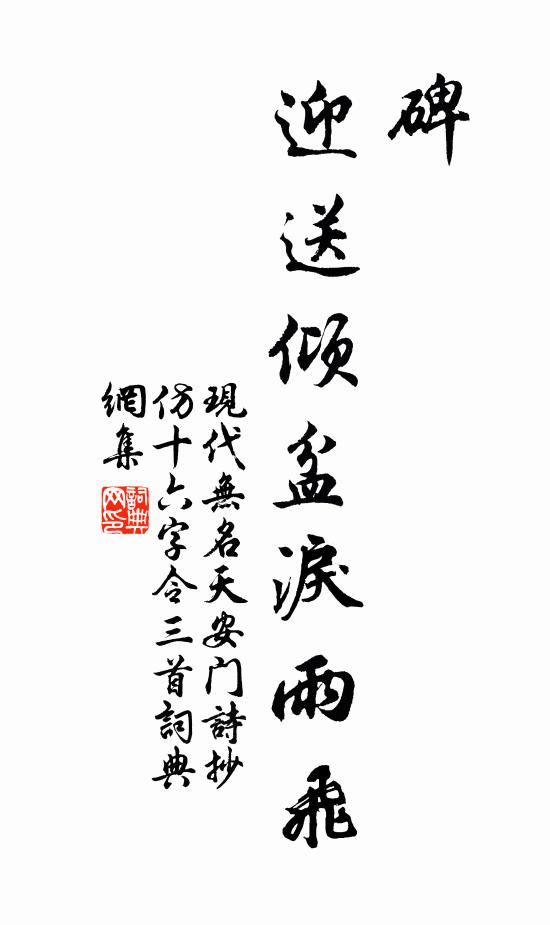 碑
迎送倾盆淚雨飛
現代無名天安门詩抄
仿十六字令三首詞典
網集
詞典
网印